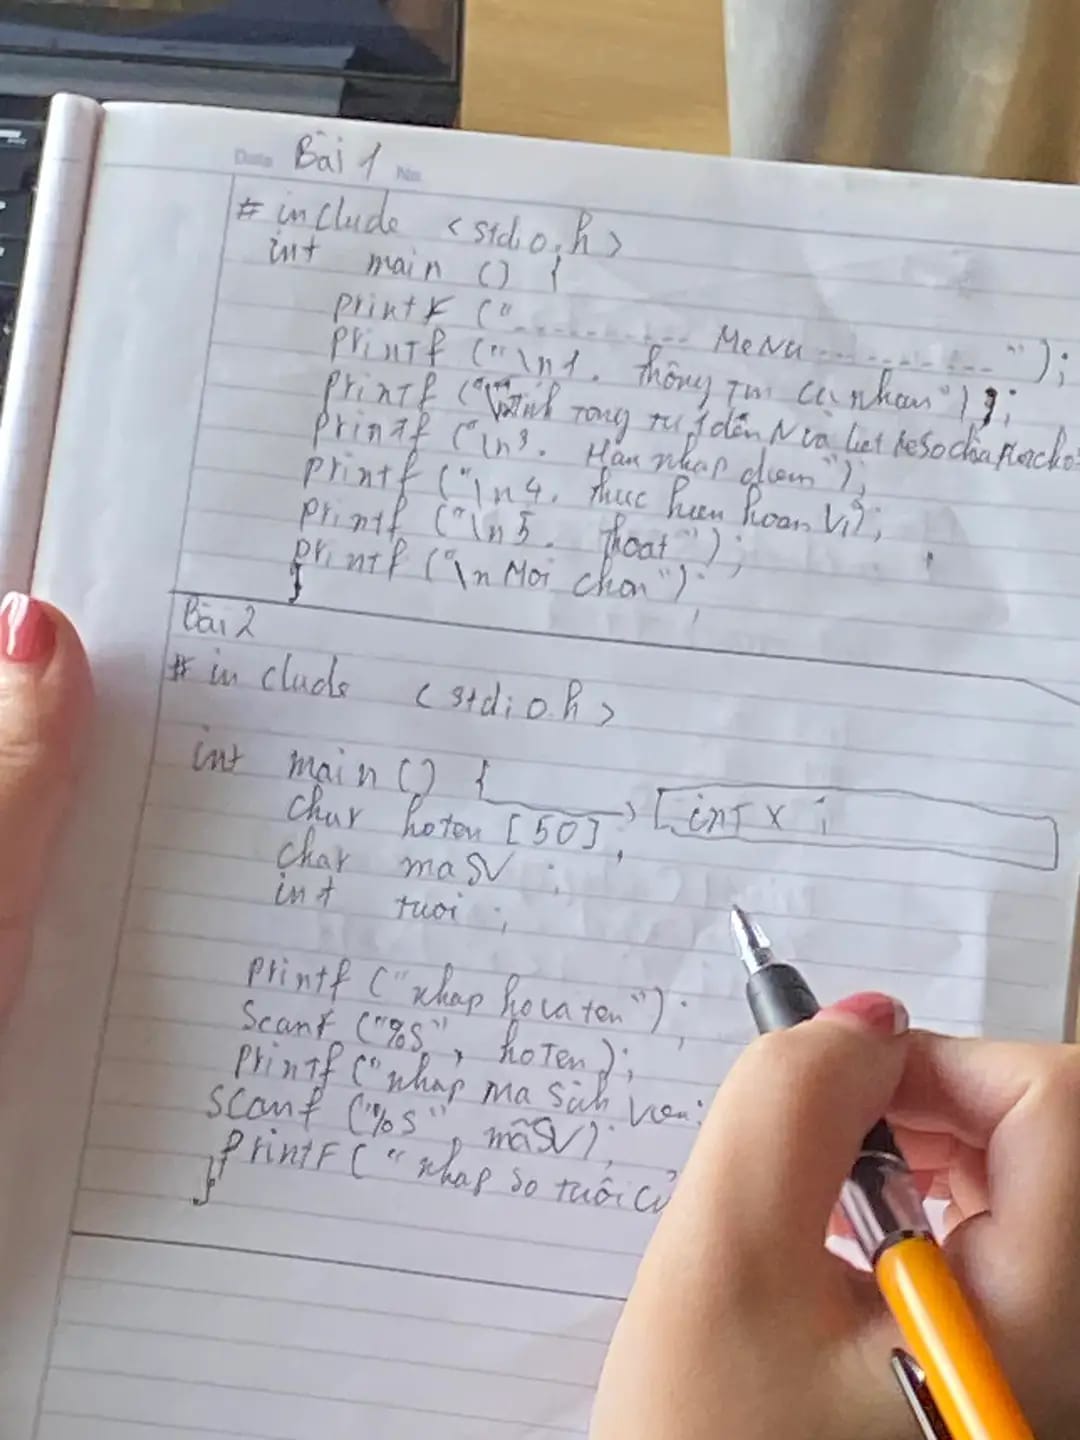 Date Bài 1 No.
# include <stdio.h>
int main () {
printf ("---------- MeNu ---------- ");
printf ("\n1. Thông tin cá nhan");
printf ("\n Tinh Tong từ 1 đến N và liet ke so chia
printf ("\n3. Han nhap diem");
printf ("\n4. thuc hien hoan Vi);
printf ("\n5. Thoat");
printf ("\n Moi chon");
}
Bài 2
# include <stdio.h>
int main () {
int x ;
char hoten [50],
char maSV ;
int tuoi ;
printf ("nhap ho va ten");
Scanf ("%s", hoTen);
printf ("nhap Ma Sinh Vien:
Scanf ("%s", mãSV);
printF ( "nhap so tuổi củ
}